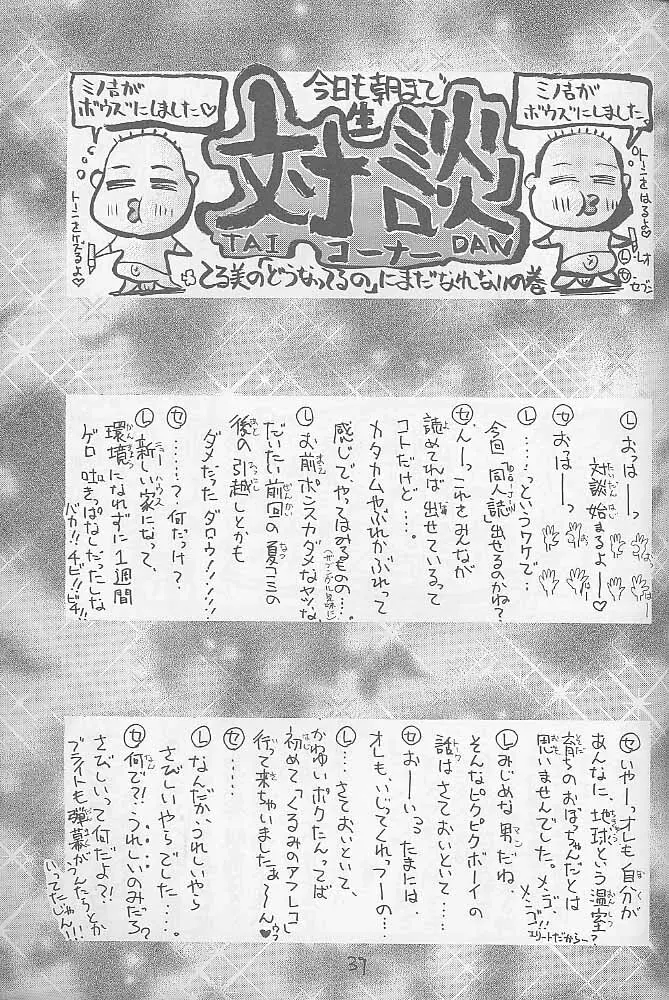 今日も朝まで
生
対談
TAI コーナー DAN
てる美の「どうなってるの」にまだなれないの巻
ミノ吉が
ボウズにしました
トーンをはるよ
レオ
セブン
ミノ吉が
ボウズにしました♡
トーンをケズるよ♡
Ⓛおっはーっ
対談始まるよー♡
たいだんはじ
セおっはーっ
Ⓛ……っというワケで…
今回「同人誌」出せるのかね？
セんーっこれをみんなが
読めてれば出せているって
コトだけど…。
カタカムやぶれかぶれって
感じで、やってはみるものの…。
Ⓛお前ポンスカダメなヤツな、
だいたい前回の夏コミの
後の引越しとかも
ダメだったダロウ!!!!!
セ……？何だっけ？
Ⓛ新しい家になって、
ニューハウス
環境になれずに1週間
かんきょう
ゲロ吐きっぱなしだったしな
バカ!!チビ!!ビチ!!
セいやーっオレも自分が
あんなに、地球という温室
育ちのおぼっちゃんだとは
思いませんでした。メンゴ、メンゴ!!
エリートだからー？
Ⓛみじめな男だね、
そんなピクピクボーイの
話はさておいといて…
セおーいっ、たまには、
オレも、いじってくれっつーの…
Ⓛ…さておいといて、
かわゆいボクたんってば
初めて「くるみのアフレコ」
行って来ちゃいましたぁ〜ん♡
ウフ
セ……
Ⓛなんだか、うれしいやら
さびしいやらでした…。
セ何で？！うれしいのみだろ？
さびしいって何だよ？！
ブライトも弾幕がうんたらとか
いってたじゃん!!!
37